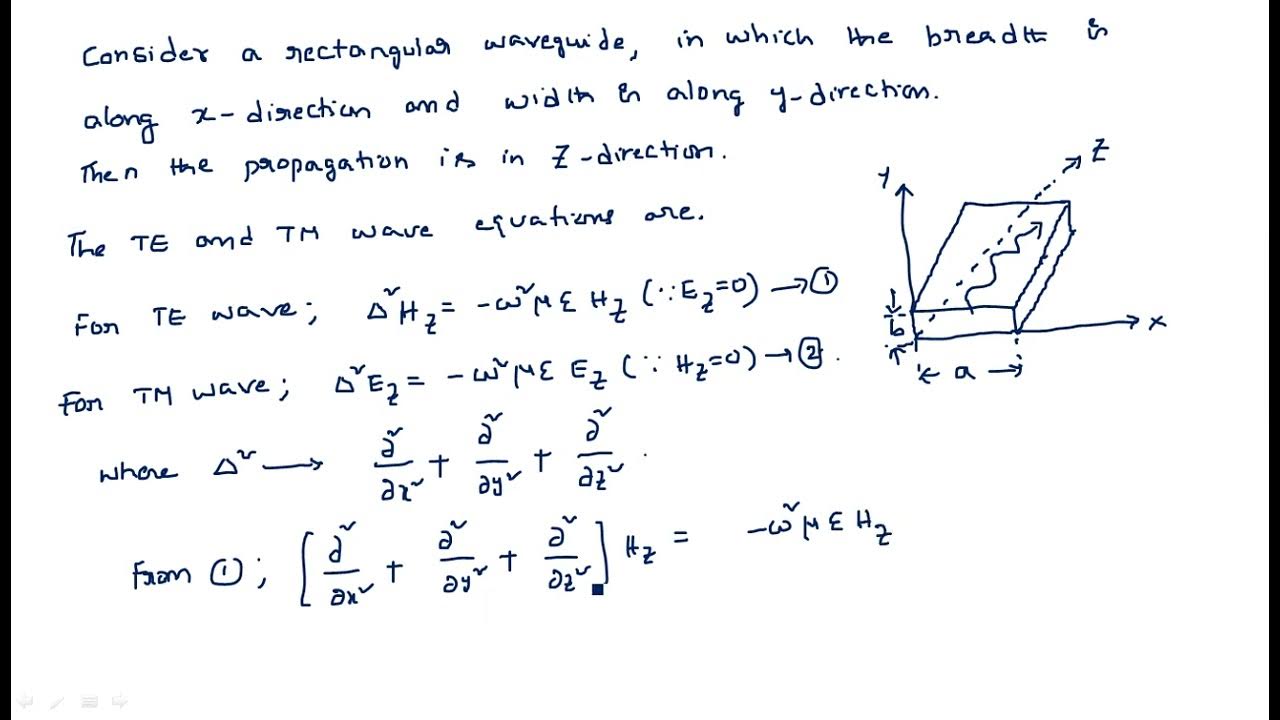 Consider a rectangular waveguide, in which the breadth is
along x-direction and width is along y-direction.
Then the propagation is in Z-direction.
The TE and TM wave equations are.
For TE wave; Δ²H_Z = -ω²με H_Z (∵ E_Z=0) → ①
For TM wave; Δ²E_Z = -ω²με E_Z (∵ H_Z=0) → ②.
where Δ² → ∂²/∂x² + ∂²/∂y² + ∂²/∂z².
From ①; [∂²/∂x² + ∂²/∂y² + ∂²/∂z²] H_Z = -ω²με H_Z
Y
Z
b
x
a